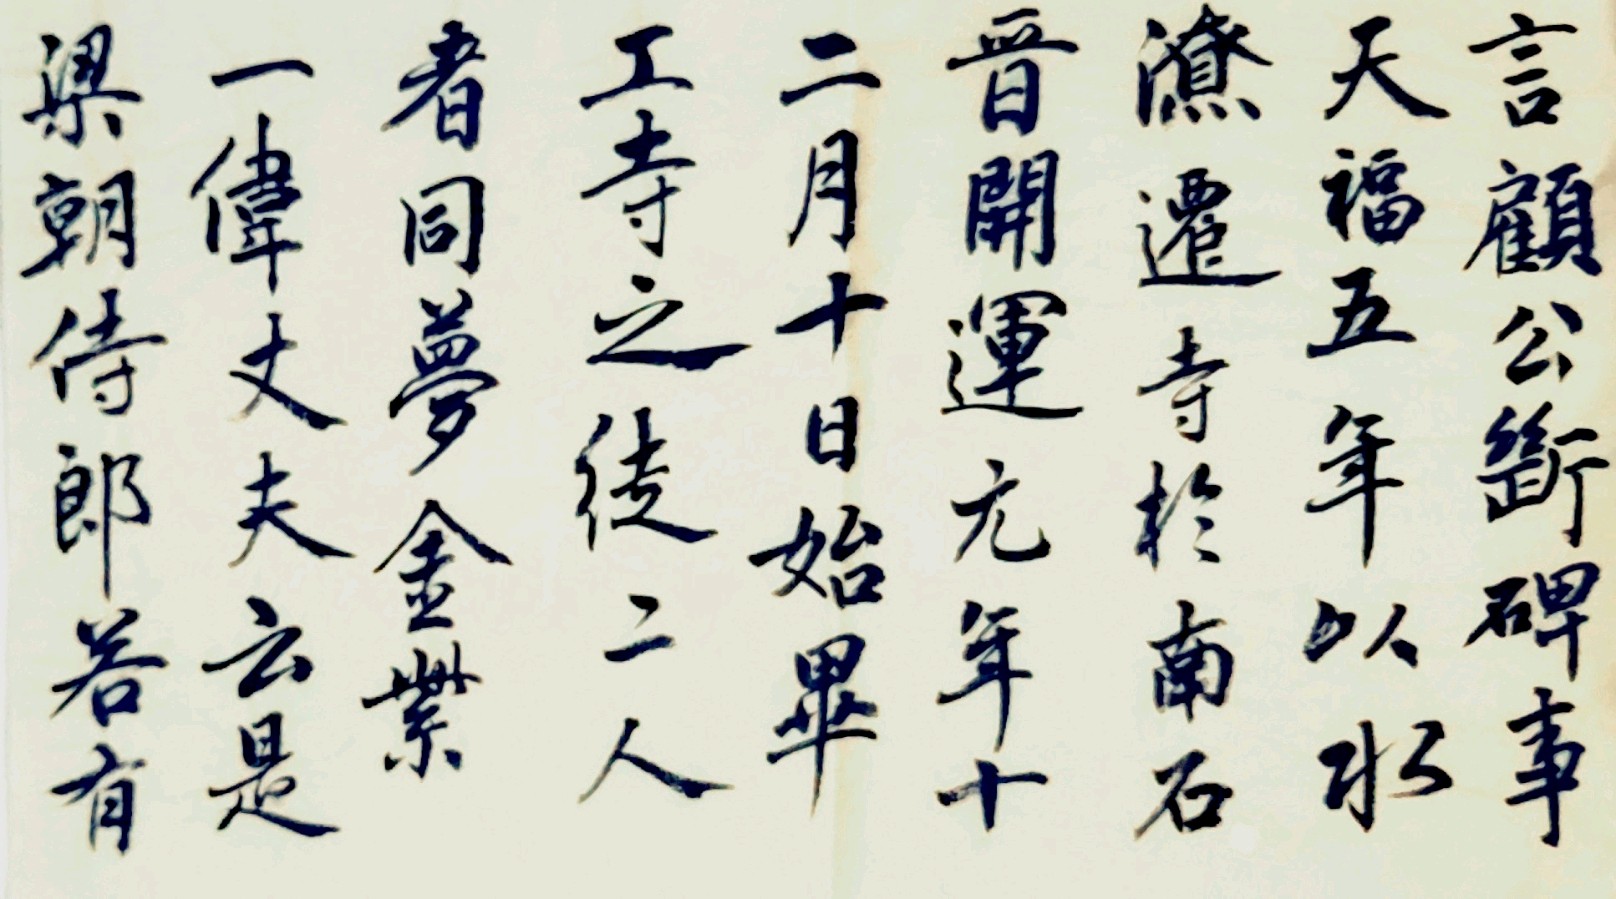 言顧公斷碑事
天福五年以水
潦遷寺於南石
晋開運元年十
二月十日始畢
工寺之徒二人
者同夢金紫
一偉丈夫云是
梁朝侍郎若有